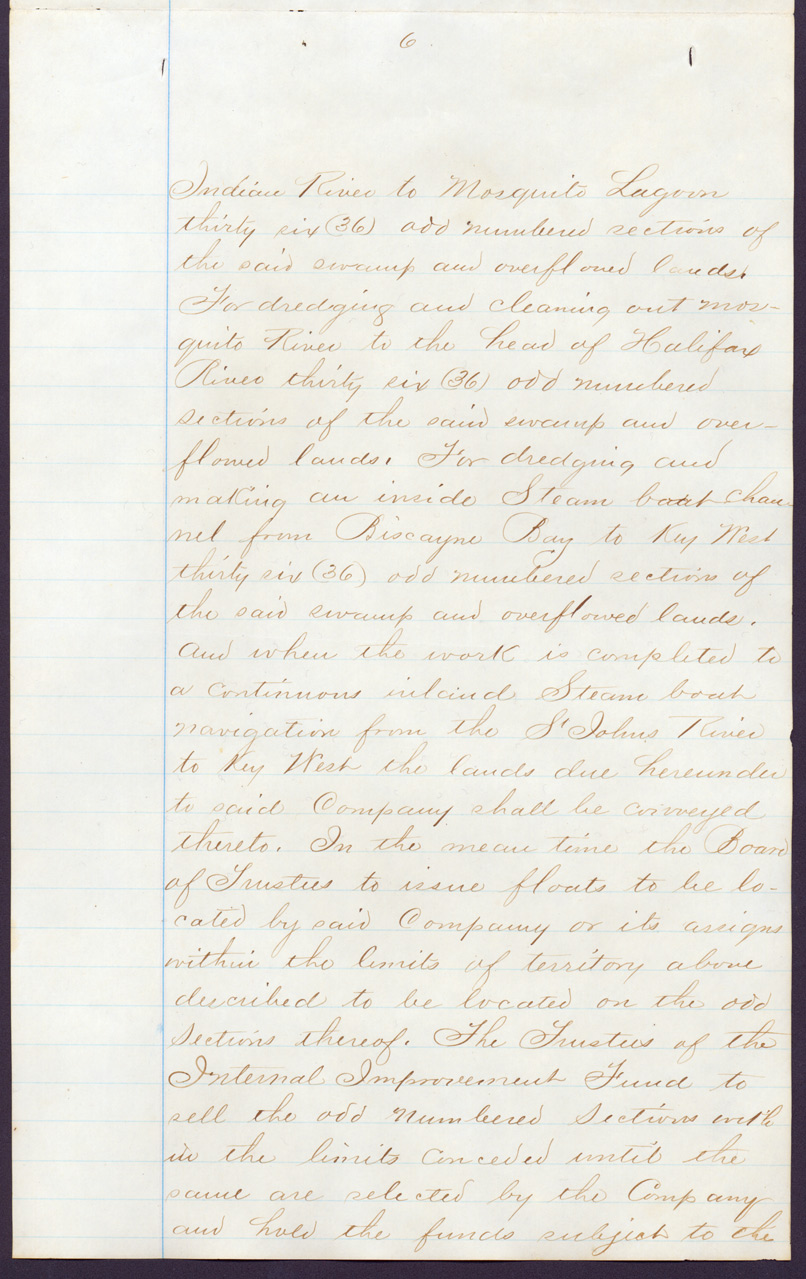 6
Indian River to Mosquito Lagoon
thirty six (36) odd numbered sections of
the said swamp and overflowed lands.
For dredging and cleaning out mos-
quito River to the head of Halifax
River thirty six (36) odd numbered
sections of the said swamp and over-
flowed lands. For dredging and
making an inside Steam boat chan-
nel from Biscayne Bay to Key West
thirty six (36) odd numbered sections of
the said swamp and overflowed lands.
And when the work is completed to
a continuous inland Steam boat
navigation from the St Johns River
to Key West the lands due hereunder
to said Company shall be conveyed
thereto. In the mean time the Board
of Trustees to issue floats to be lo-
cated by said Company or its assigns
within the limits of territory above
described to be located on the odd
Sections thereof. The Trustees of the
Internal Improvement Fund to
sell the odd numbered Sections with
in the limits conceded until the
same are selected by the Company
and hold the funds subject to the